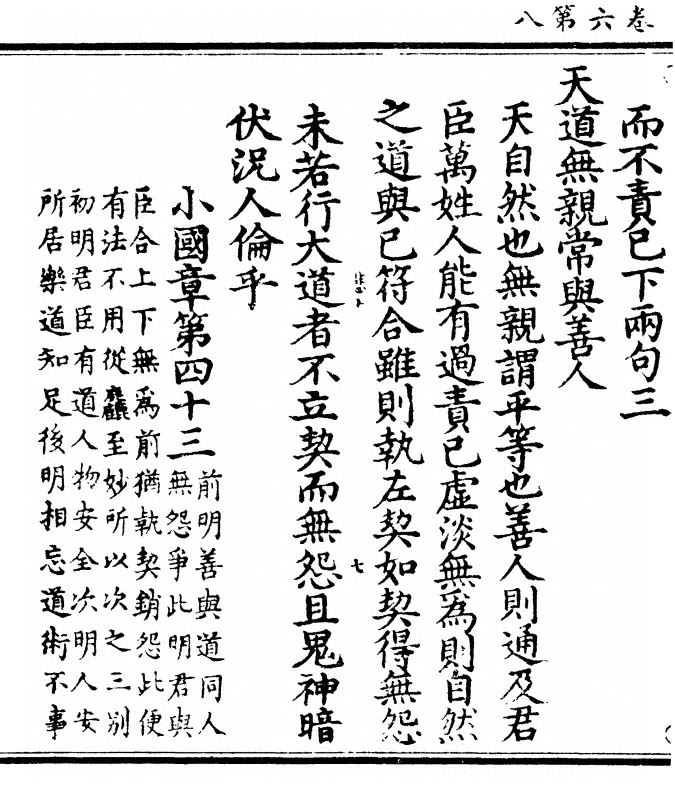 卷六第八
而不責已下兩句三
天道無親常與善人
天自然也無親謂平等也善人則通及君
臣萬姓人能有過責已虛淡無為則自然
之道與已符合雖則執左契如契得無怨
未若行大道者不立契而無怨且鬼神暗
七
伏況人倫乎
小國章第四十三
前明善與道同人
無怨爭此明君與
臣合上下無為前猶執契銷怨此便
有法不用從麤至妙所以次之三別
初明君臣有道人物安全次明人安
所居樂道知足後明相忘道術不事